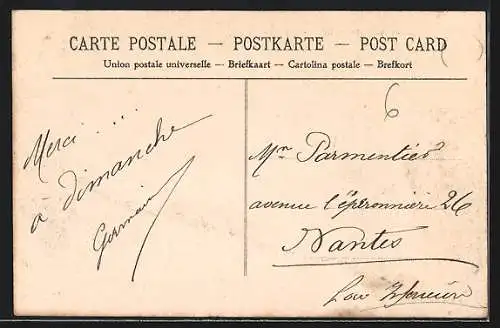 CARTE POSTALE — POSTKARTE — POST CARD
Union postale universelle — Briefkaart — Cartolina postale — Brefkort
6
Merci ....
a dimanche
Germain
Mr Parmentier
avenue l'éperonnière 26
Nantes
Loire Inférieure